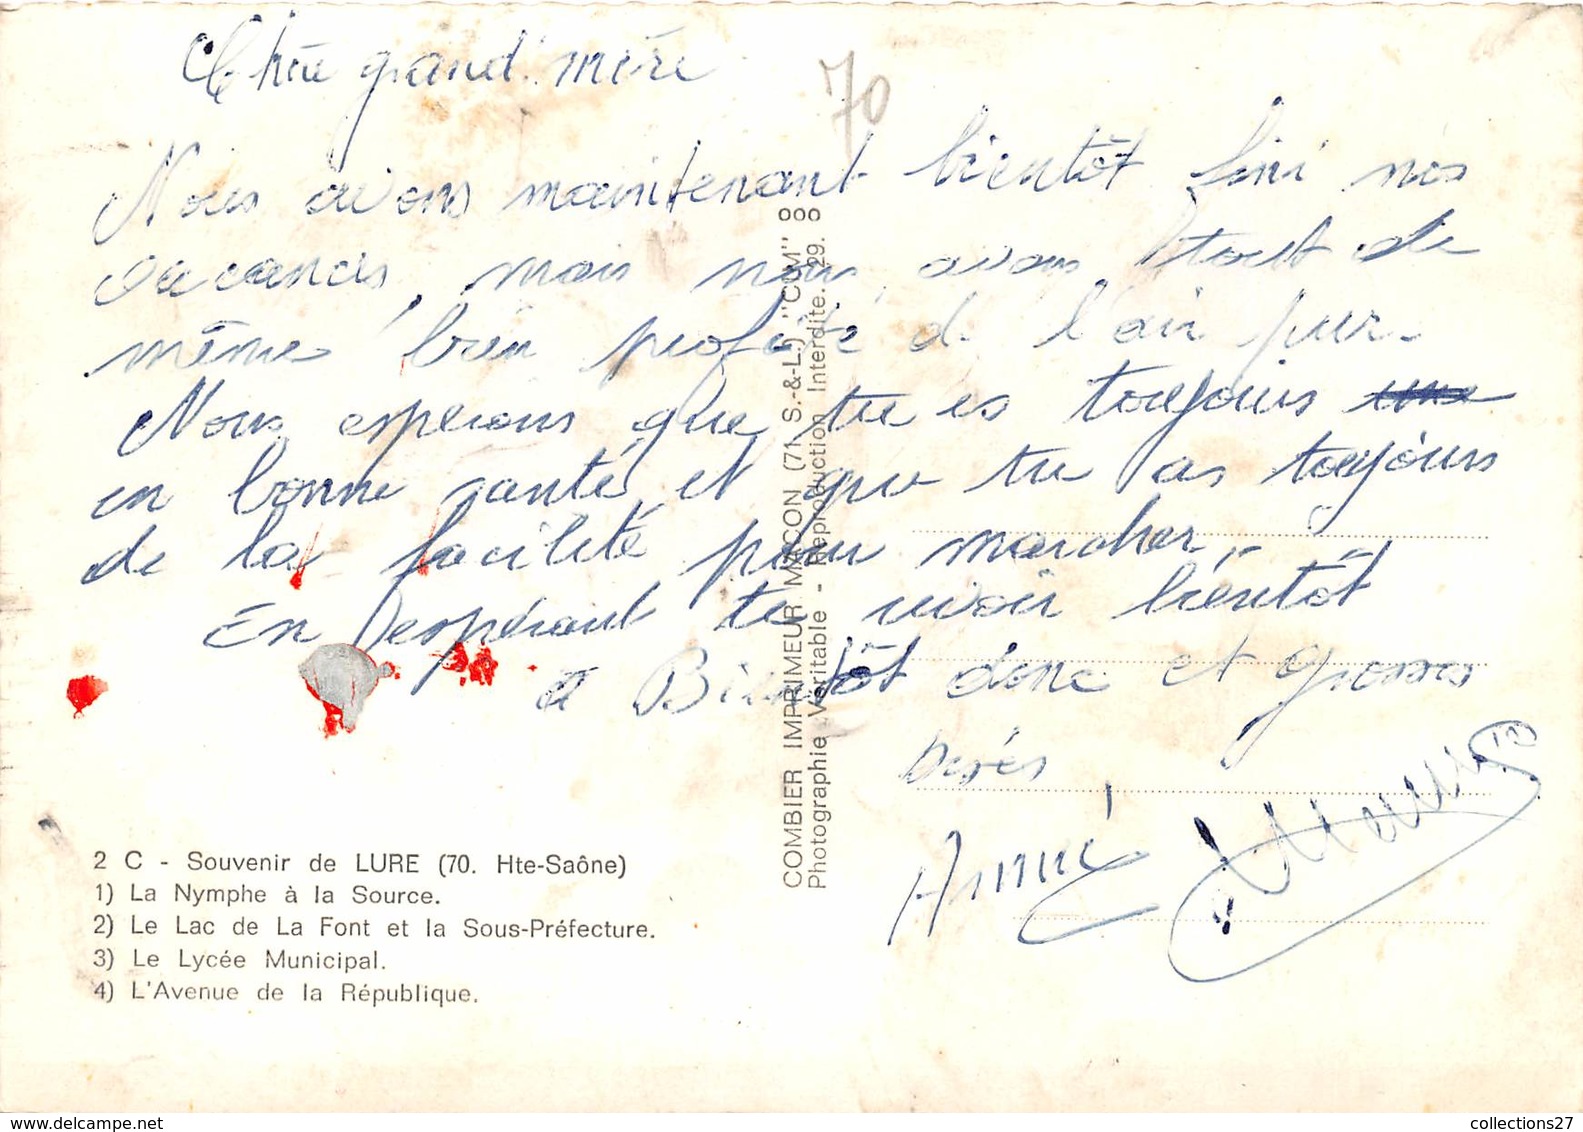 Chère grand'mère
70
Nous avons maintenant bientôt fini nos
vacances, mais nous avons tout de
même bien profité de l'air pur.
Nous espérons que tu es toujours
en bonne santé, et que tu as toujours
de la facilité pour marcher.
En espérant te revoir bientôt
à Bientôt donc et grosses
bisés
Annie Maurice
COMBIER IMPRIMEUR MACON (71 S.-&-L.) "CUM"
Photographie Véritable - Reproduction Interdite. 29.
2 C - Souvenir de LURE (70. Hte-Saône)
1) La Nymphe à la Source.
2) Le Lac de La Font et la Sous-Préfecture.
3) Le Lycée Municipal.
4) L'Avenue de la République.
collections27